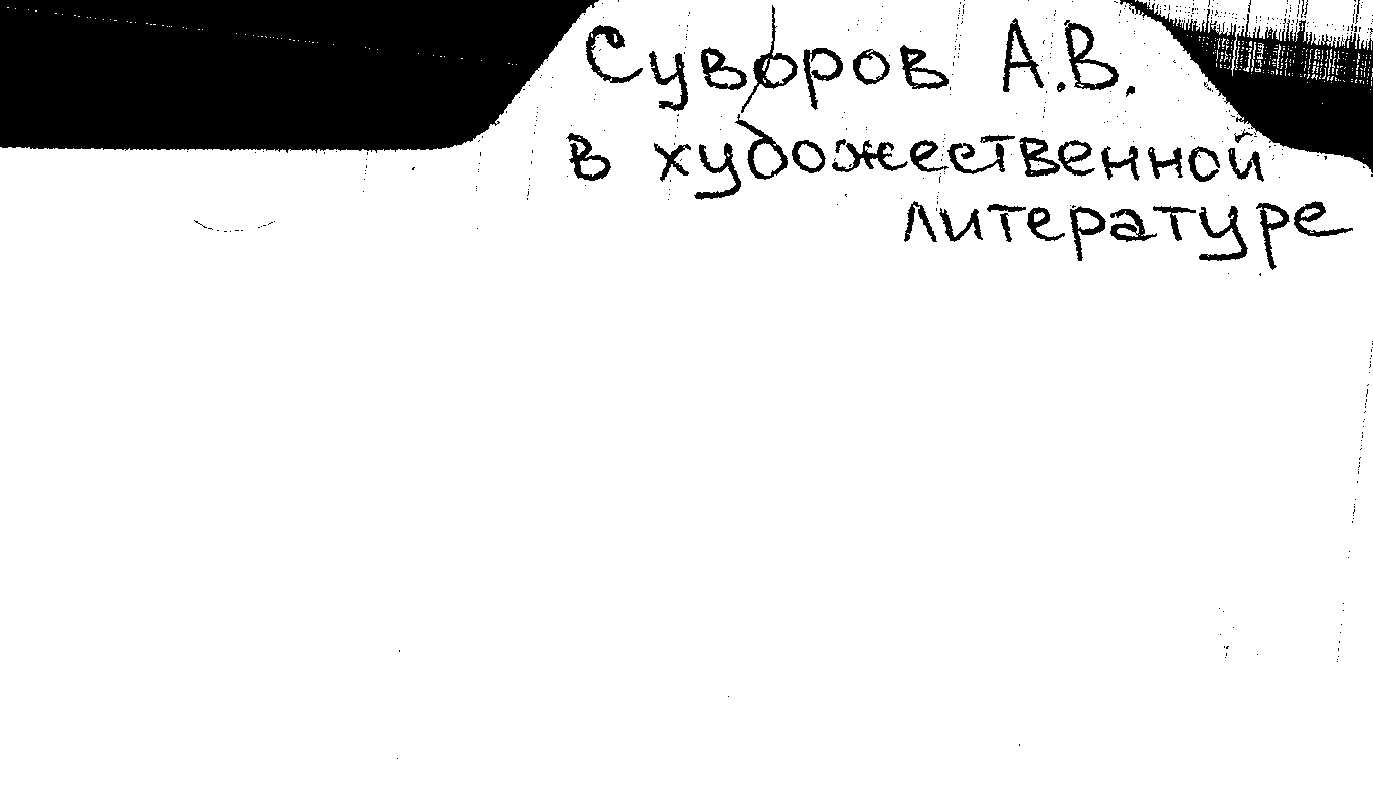 Суворов А.В.
в художественной
литературе